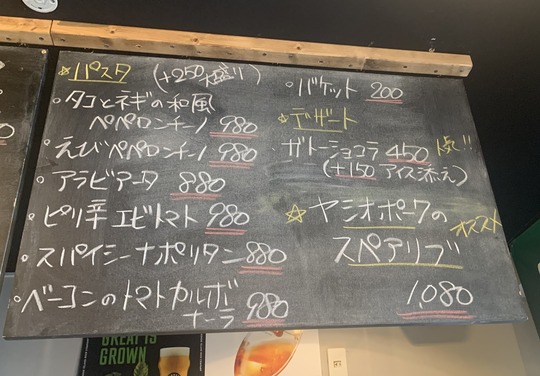 ☆パスタ (+250大盛り)
・タコとネギの和風
ペペロンチーノ 980
・えびペペロンチーノ 980
・アラビアータ 880
・ピリ辛エビトマト 980
・スパイシーナポリタン 880
・ベーコンのトマトカルボ
ナーラ 980
・バケット 200
☆デザート
ガトーショコラ 450
(+150 アイス添え)
☆ヤシオポークの
オススメ
スペアリブ
1080
GREAT IS
GROWN